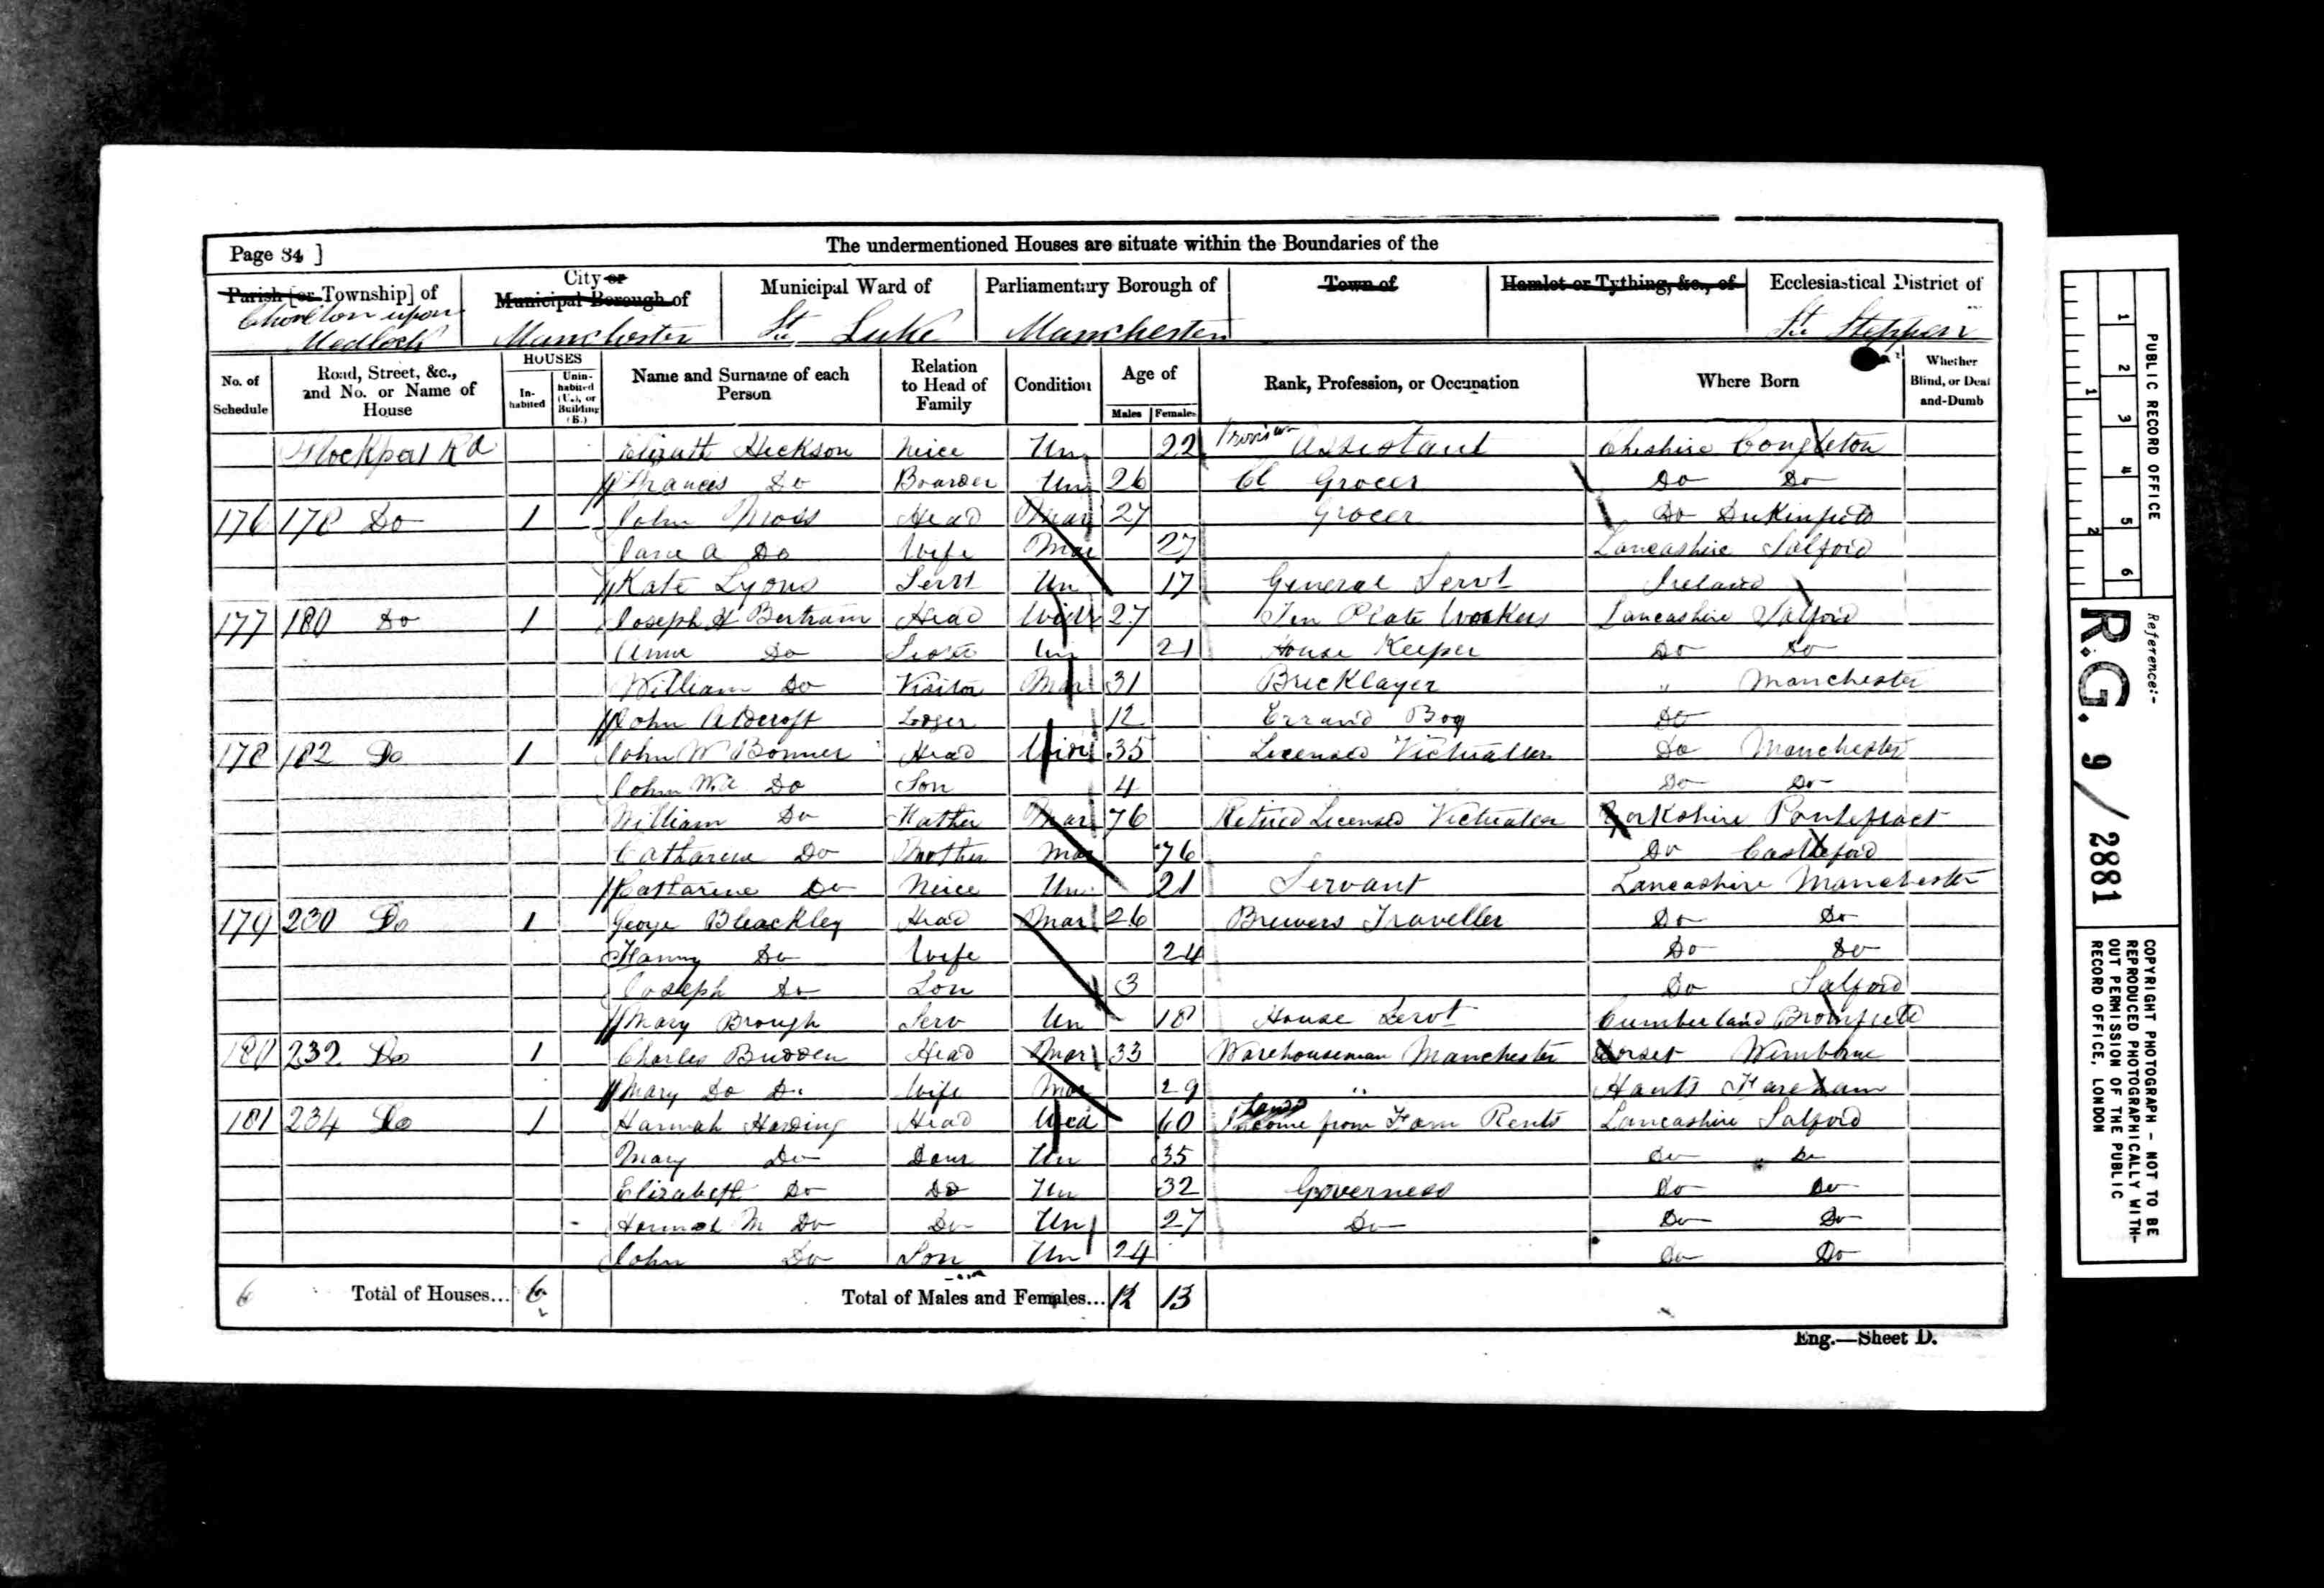 Page 34 ]
The undermentioned Houses are situate within the Boundaries of the
Parish [or Township] of
Chorlton upon Medlock
City or Municipal Borough of
Manchester
Municipal Ward of
St. Luke
Parliamentary Borough of
Manchester
Town of
Hamlet or Tything, &c., of
Ecclesiastical District of
St. Stephen
No. of Schedule
Road, Street, &c., and No. or Name of House
HOUSES
In-habited
Unin-habited (U.), or Building (B.)
Name and Surname of each Person
Relation to Head of Family
Condition
Age of
Males
Females
Rank, Profession, or Occupation
Where Born
Whether Blind, or Deaf-and-Dumb
Stockport Rd Elizath Heckson Neice Un 22 Provision Assistant Cheshire Congleton
Frances Do Boarder Un 26 Cl Grocer Do Do
176 178 Do 1 John Moss Head Mar 27 Grocer Do Dukinfield
Jane A Do Wife Mar 27 Lancashire Salford
Kate Lyons Servt Un 17 General Servt Ireland
177 180 Do 1 Joseph H Bertram Head Widr 27 Tin Plate Workers Lancashire Salford
Anne Do Sister Un 21 House Keeper Do Do
William Do Visitor Mar 31 Bricklayer " Manchester
John Lodger 12 Errand Boy Do
178 182 Do 1 John W Bonner Head Widr 35 Licensed Victualler Do Manchester
John W.A Do Son 4 Do Do
William Do Father Mar 76 Retired Licensed Victualler Yorkshire Pontefract
Catharine Do Mother Mar 76 Do Castleford
Catharine Do Neice Un 21 Servant Lancashire Manchester
179 230 Do 1 George Bleackley Head Mar 26 Brewers Traveller Do Do
Fanny Do Wife 24 Do Do
Joseph Do Son 3 Do Salford
Mary Brough Serv Un 18 House Servt Cumberland Bromfield
180 232 Do 1 Charles Budden Head Mar 33 Warehouseman Manchester Dorset Wimborne
Mary Do Do Wife Mar 29 " Hants Fareham
181 234 Do 1 Hannah Harding Head Wid 60 Income from Farm Rents Lancashire Salford
Mary Do Daur Un 35 Do Do
Elizabeth Do Do Un 32 Governess Do Do
Hannah M Do Do Un 27 Do Do Do
John Do Son Un 24 Do Do
6 Total of Houses... 6 Total of Males and Females... 12 13
Eng.—Sheet D.
PUBLIC RECORD OFFICE
1 2 3 4 5 6
1 2
Reference:-
R.G. 9/2881
COPYRIGHT PHOTOGRAPH - NOT TO BE
REPRODUCED PHOTOGRAPHICALLY WITH-
OUT PERMISSION OF THE PUBLIC
RECORD OFFICE, LONDON